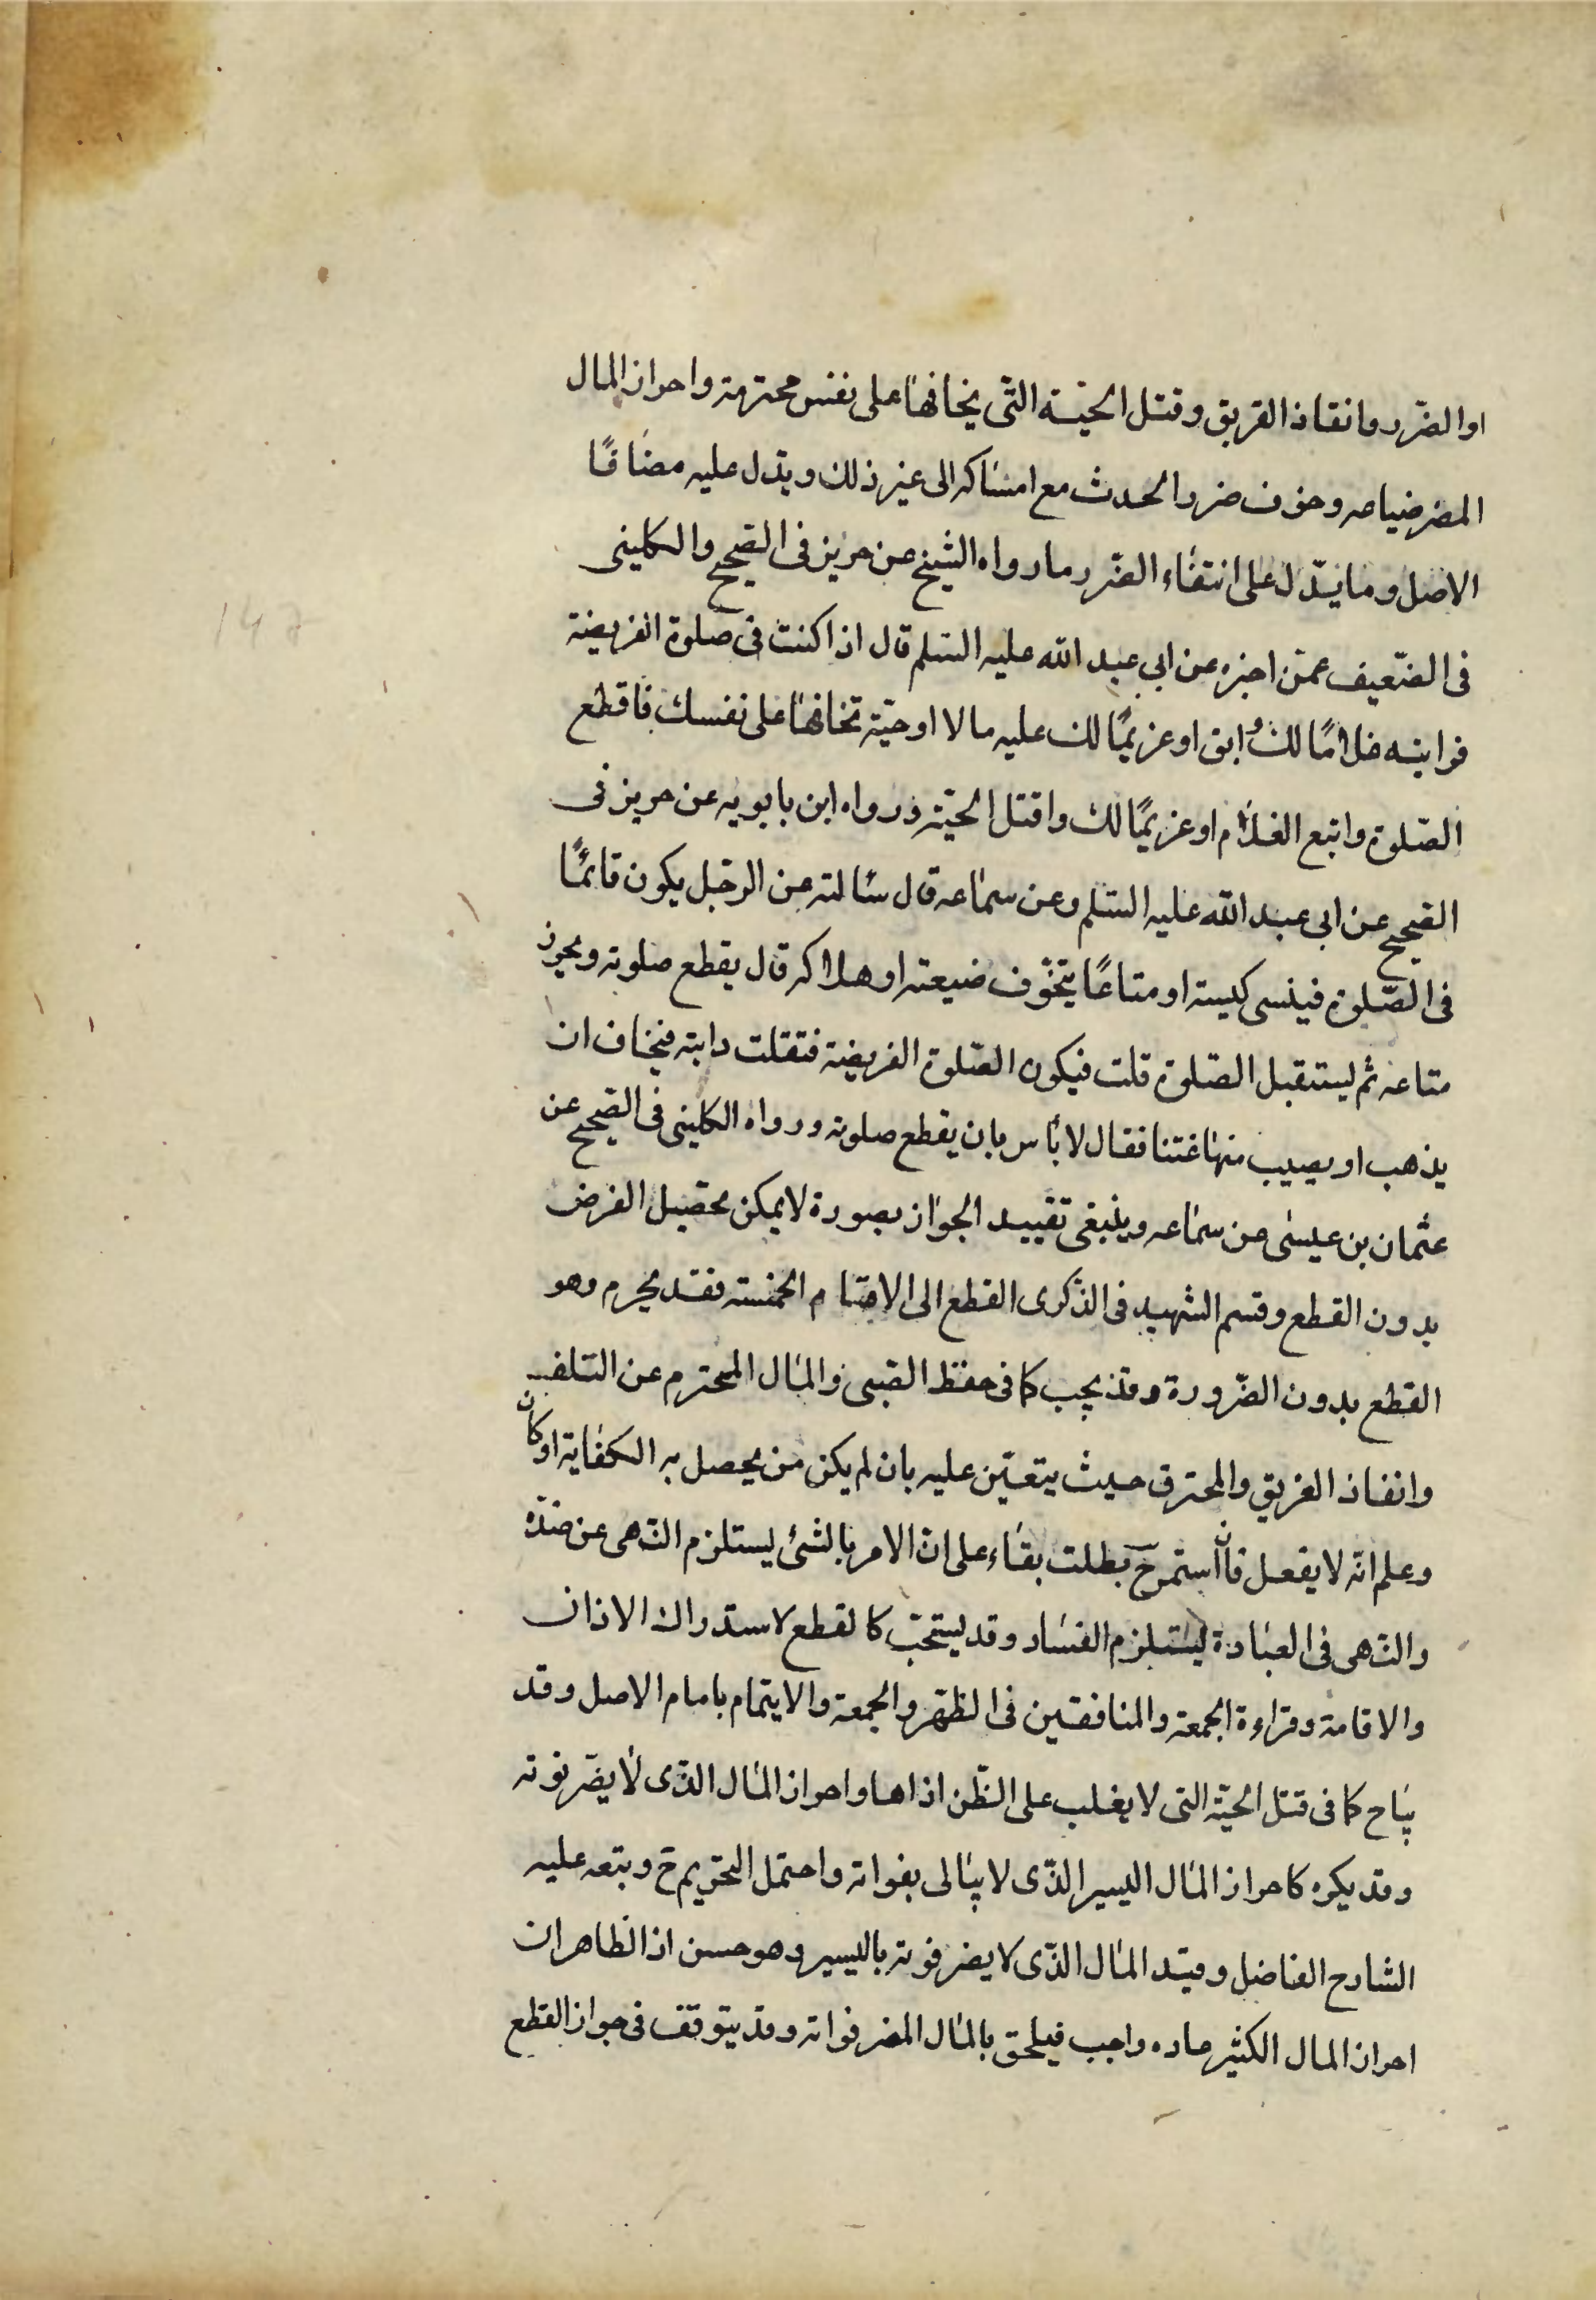 او الضرر وانقاذ الغريق وقتل الحيّة التى يخافها على نفس محترمة واحراز المال
المضر ضياعه وخوف ضرر الحدث مع امساكه الى غير ذلك ويدل عليه مضافًا
الاصل وما يدل على انتفاء الضرر ما رواه الشيخ عن حريز فى الصحيح والكلينى
فى الضّعيف عمّن اخبره عن ابي عبد الله عليه السّلم قال اذا كنت فى صلوة الفريضة
فرايت غلامًا لك ابق او غريمًا لك عليه مالا او حيّة تخافها على نفسك فاقطع
الصّلوة واتبع الغلام او غريمًا لك واقتل الحيّة ورواه ابن بابويه عن حريز فى
الصحيح عن ابى عبد الله عليه السّلم وعن سماعه قال سالته عن الرجل يكون قائمًا
فى الصّلوة فينسى كيسه او متاعًا يتخوّف ضيعته او هلاكه قال يقطع صلوته ويحرز
متاعه ثم ليستقبل الصّلوة قلت فيكون الصّلوة الفريضة فتفلت دابته فيخاف ان
يذهب او يصيب منها عنتا فقال لا باس بان يقطع صلوته ورواه الكلينى فى الصحيح عن
عثمان بن عيسى عن سماعه وينبغى تقييد الجواز بصورة لا يمكن تحصيل الغرض
بدون القطع وقسم الشهيد فى الذكرى القطع الى الاقسام الخمسة فقد يحرم وهو
القطع بدون الضّرورة وقد يجب كما فى حفظ الصّبى والمال المحترم عن التلف
وانقاذ الغريق والمحترق حيث يتعيّن عليه بان لم يكن من يحصل به الكفاية او كان
وعلم انّه لا يفعل فان استمرّ ح بطلت بقاء على ان الامر بالشئ يستلزم النهى عن ضدّه
والنهى فى العبادة ليستلزم الفساد وقد يستحبّ كالقطع لاستدراك الاذان
والاقامة وقراءة الجمعة والمنافقين فى الظهر والجمعة والايتمام بامام الاصل وقد
يباح كما فى قتل الحيّة التى لا يغلب على الظّن اذاها واحراز المال الذّى لا يضرّ فوته
وقد يكره كاحراز المال اليسير الذّى لا يبالى بفواته واحتمل التحريم ح وتبعه عليه
الشارح الفاضل وقيّد المال الذّى لا يضر فوته باليسير وهو حسن اذ الظاهر ان
احراز المال الكثير واجب فيلحق بالمال المضر فواته وقد يتوقف فى جواز القطع